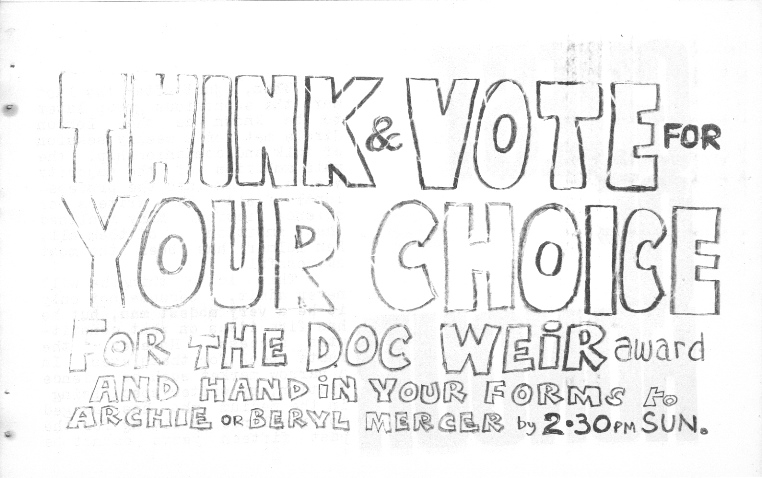 THINK & VOTE FOR
YOUR CHOICE
FOR THE DOC WEiR award
AND HAND iN YOUR FORMS to
ARCHIE OR BERYL MERCER by 2·30PM SUN.